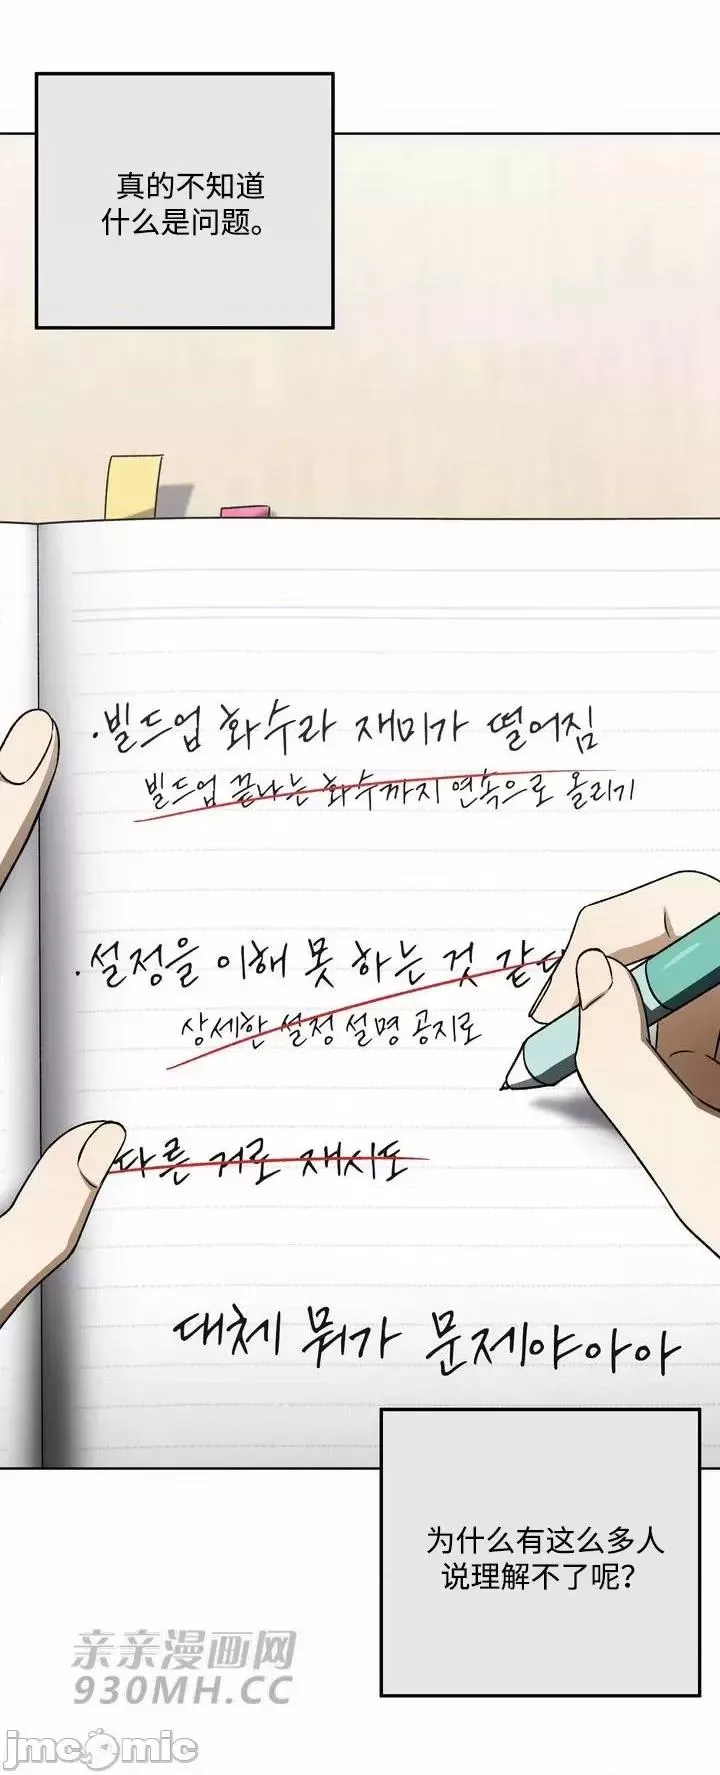 真的不知道
什么是问题。
·빌드업 화수라 재미가 떨어짐
빌드업 끝나는 화수까지 연속으로 올리기
·설정을 이해 못 하는 것 같다
상세한 설정 설명 공지로
다른 거로 재시도
대체 뭐가 문제야아아
为什么有这么多人
说理解不了呢？
亲亲漫画网
930MH.CC
jmcomic